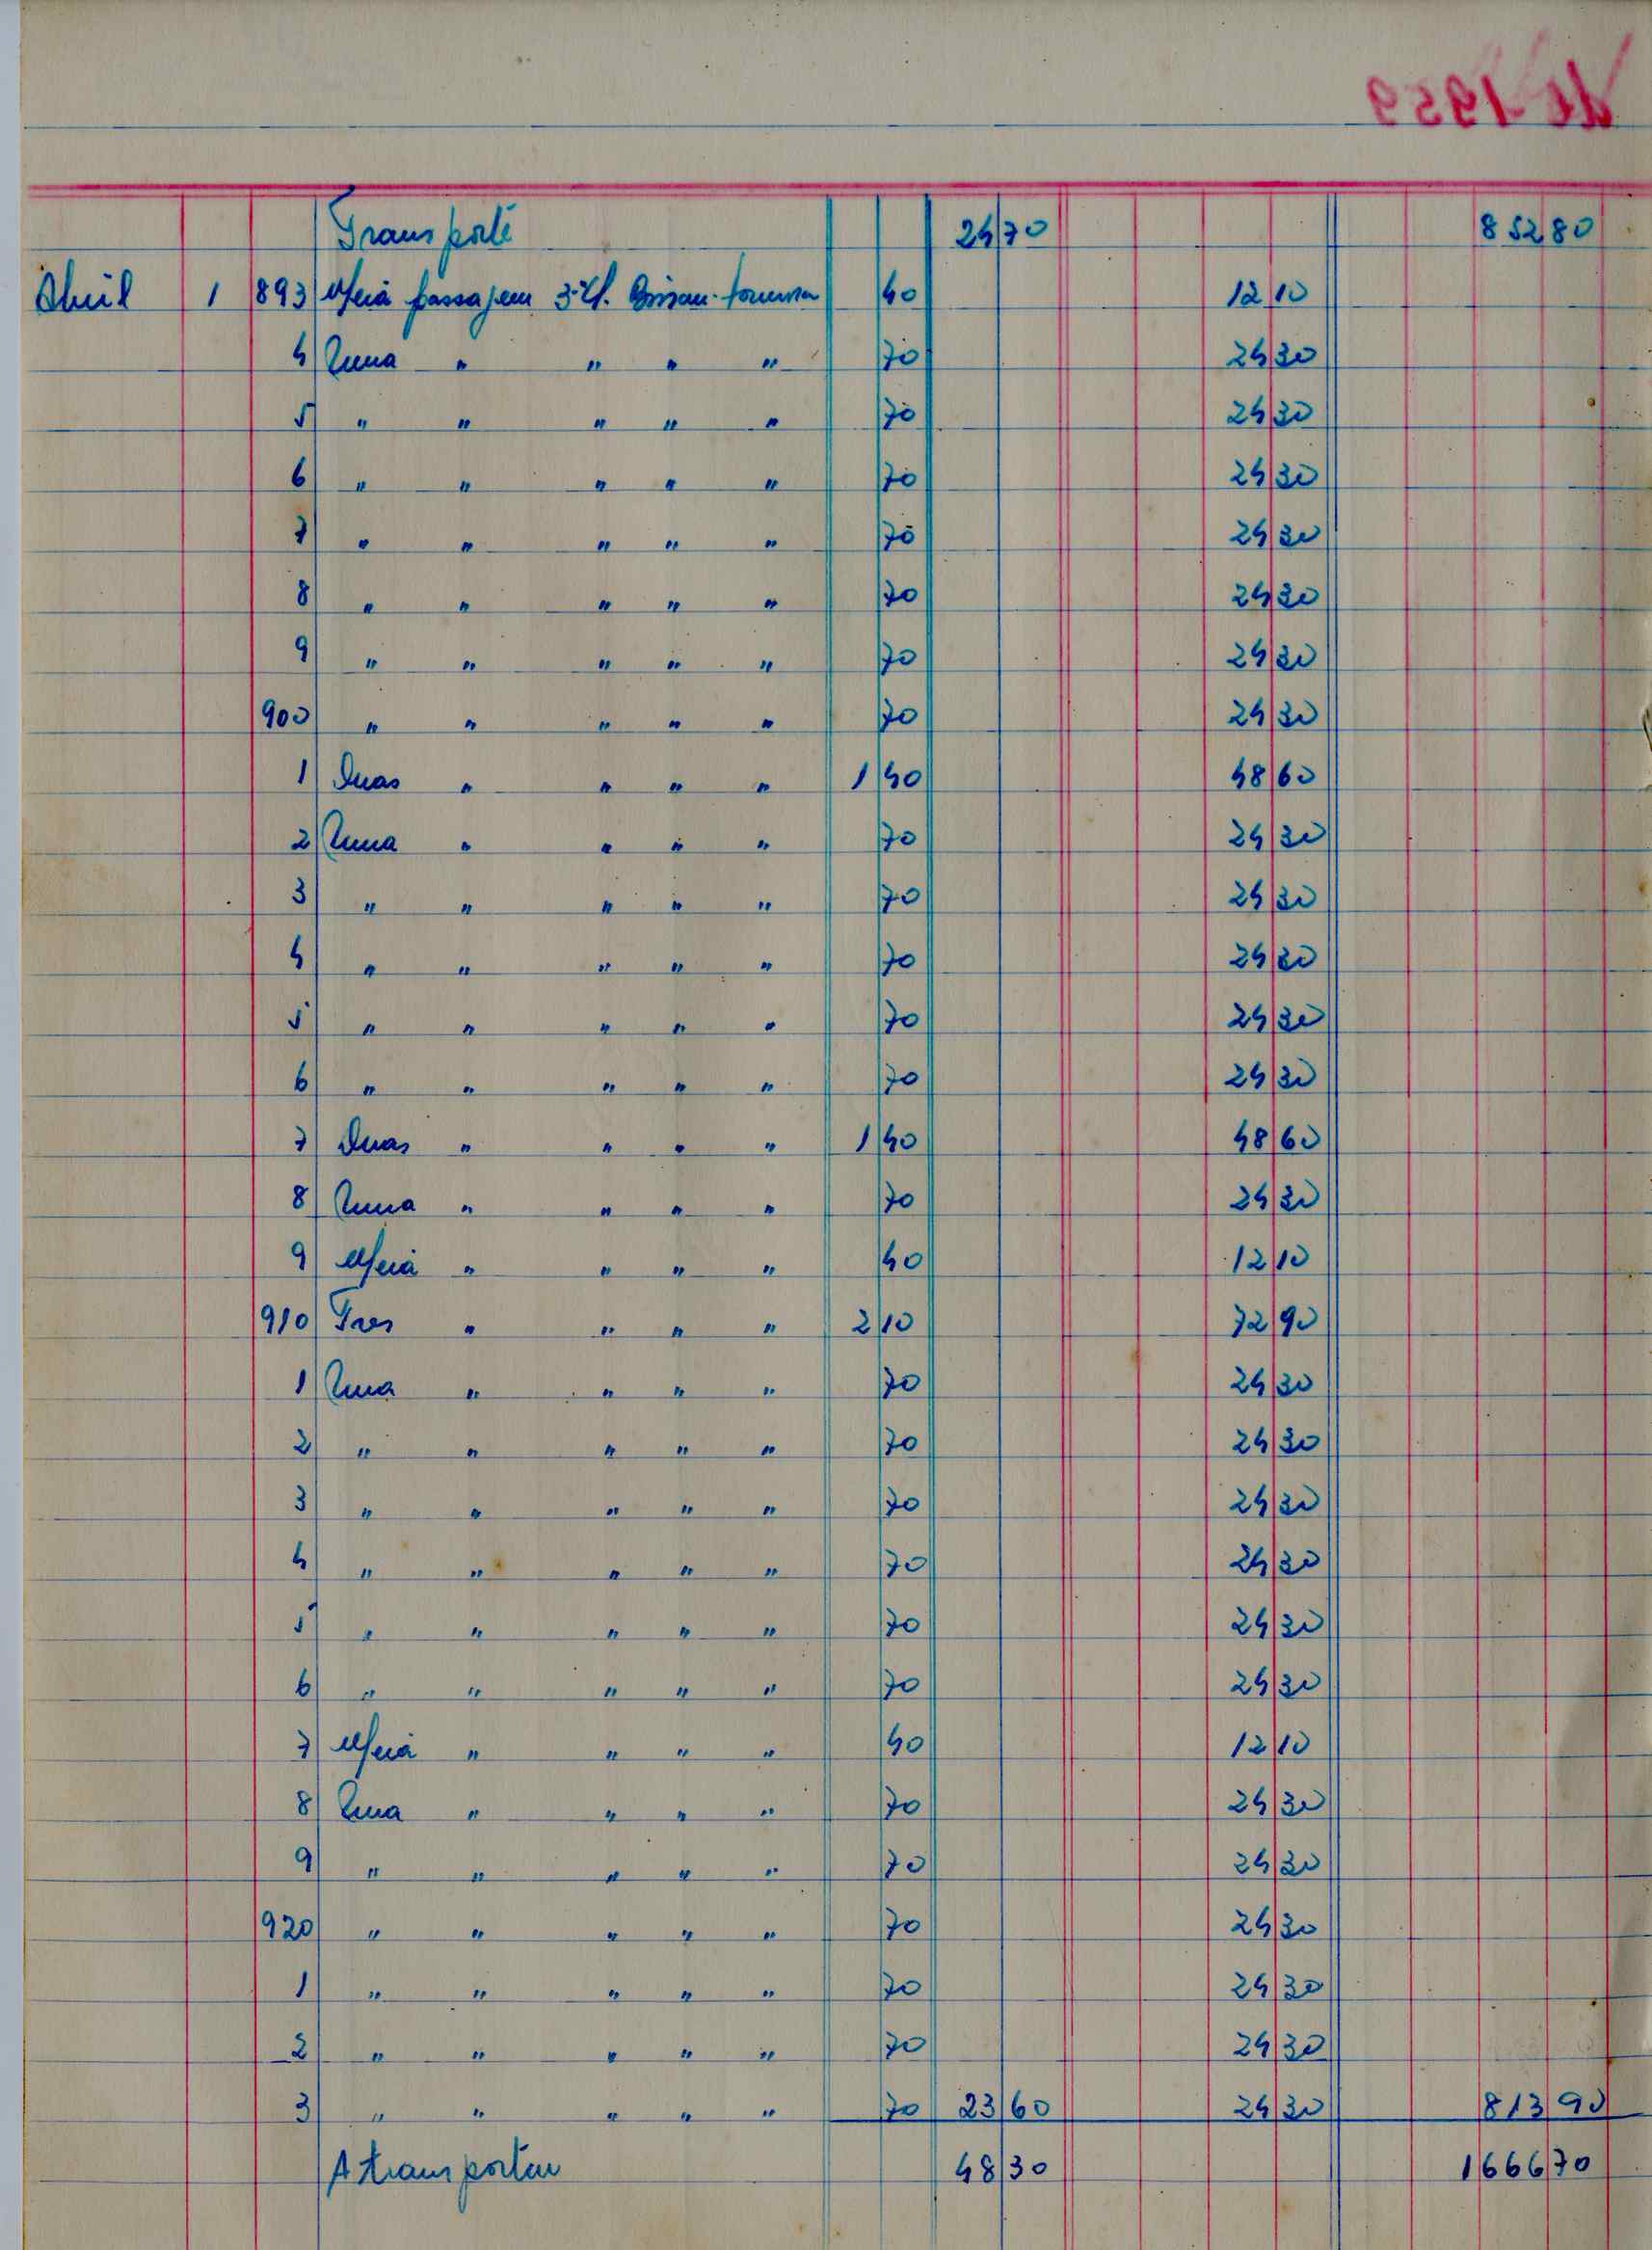 de 1959
Transporte 24 70 852 80
Abril 1 893 Meia passagem 3ª Cl. Bissau 40 12 10
4 Uma " " " " 70 24 30
5 " " " " " 70 24 30
6 " " " " " 70 24 30
7 " " " " " 70 24 30
8 " " " " " 70 24 30
9 " " " " " 70 24 30
900 " " " " " 70 24 30
1 Duas " " " " 1 40 48 60
2 Uma " " " " 70 24 30
3 " " " " " 70 24 30
4 " " " " " 70 24 30
5 " " " " " 70 24 30
6 " " " " " 70 24 30
7 Duas " " " " 1 40 48 60
8 Uma " " " " 70 24 30
9 Meia " " " " 40 12 10
910 Tres " " " " 2 10 72 90
1 Uma " " " " 70 24 30
2 " " " " " 70 24 30
3 " " " " " 70 24 30
4 " " " " " 70 24 30
5 " " " " " 70 24 30
6 " " " " " 70 24 30
7 Meia " " " " 40 12 10
8 Uma " " " " 70 24 30
9 " " " " " 70 24 30
920 " " " " " 70 24 30
1 " " " " " 70 24 30
2 " " " " " 70 24 30
3 " " " " " 70 23 60 24 30 813 90
A transportar 48 30 1666 70